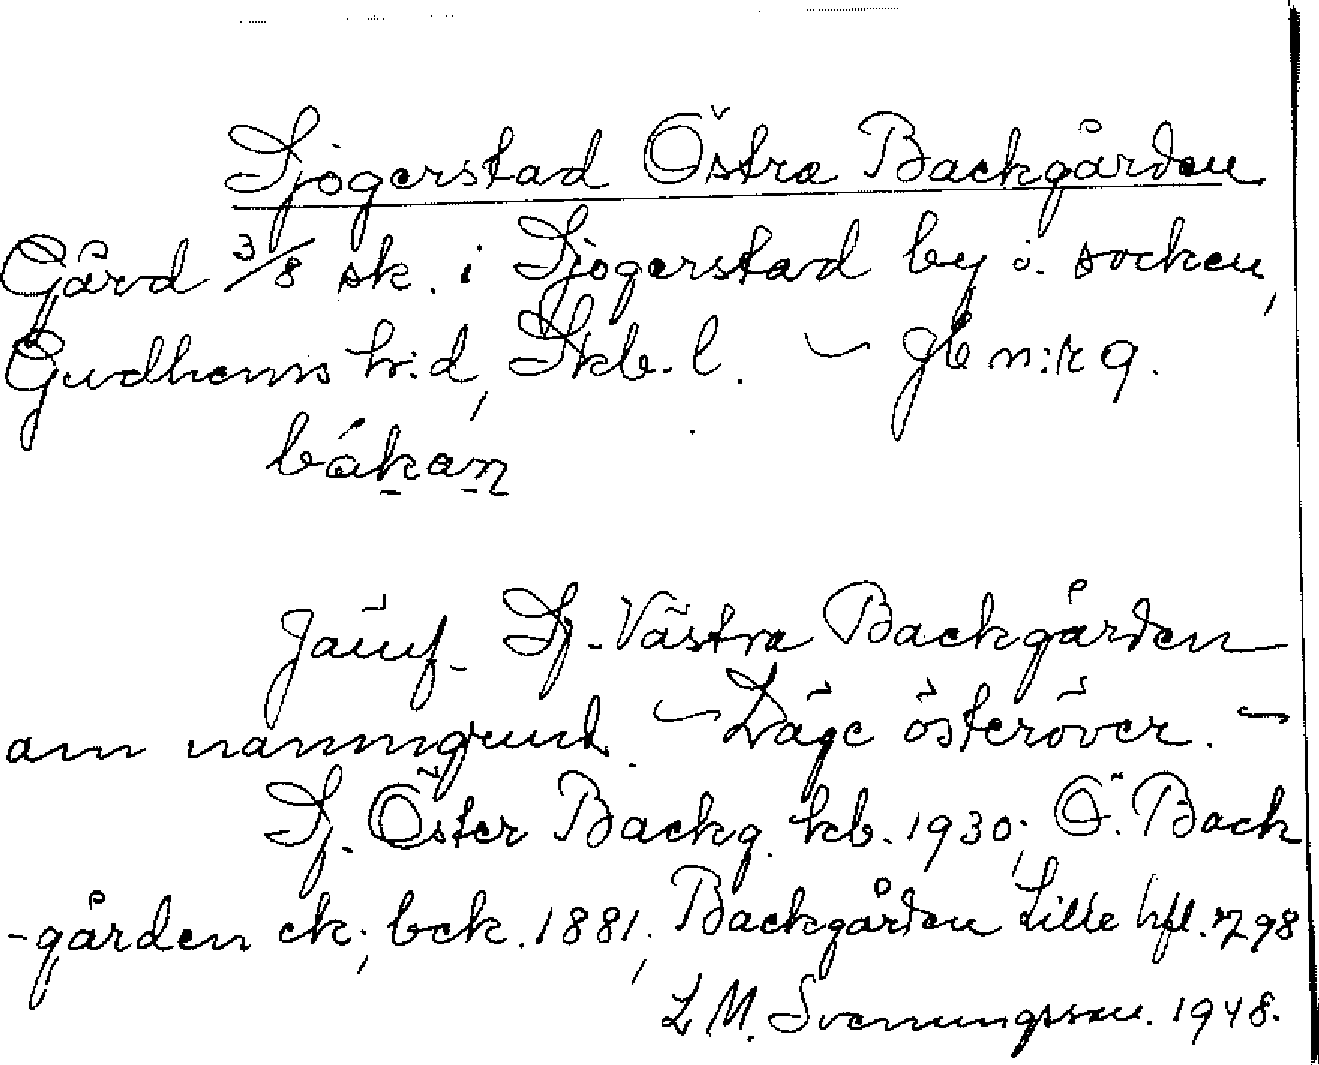 Sjogerstad Östra Backgården
Gård 3/8 sk. i Sjogerstad by o. socken,
Gudhems h:d, Skb. l. — gb n:r 9.
båkan
Jämf. Sj. Västra Backgården
om namngrund. — Läge österöver. —
Sj. Öster Backg. kb. 1930; Ö. Back
-gården ek; bck. 1881; Backgården Lille hfl. 1798
L M. Svenungsson. 1948.